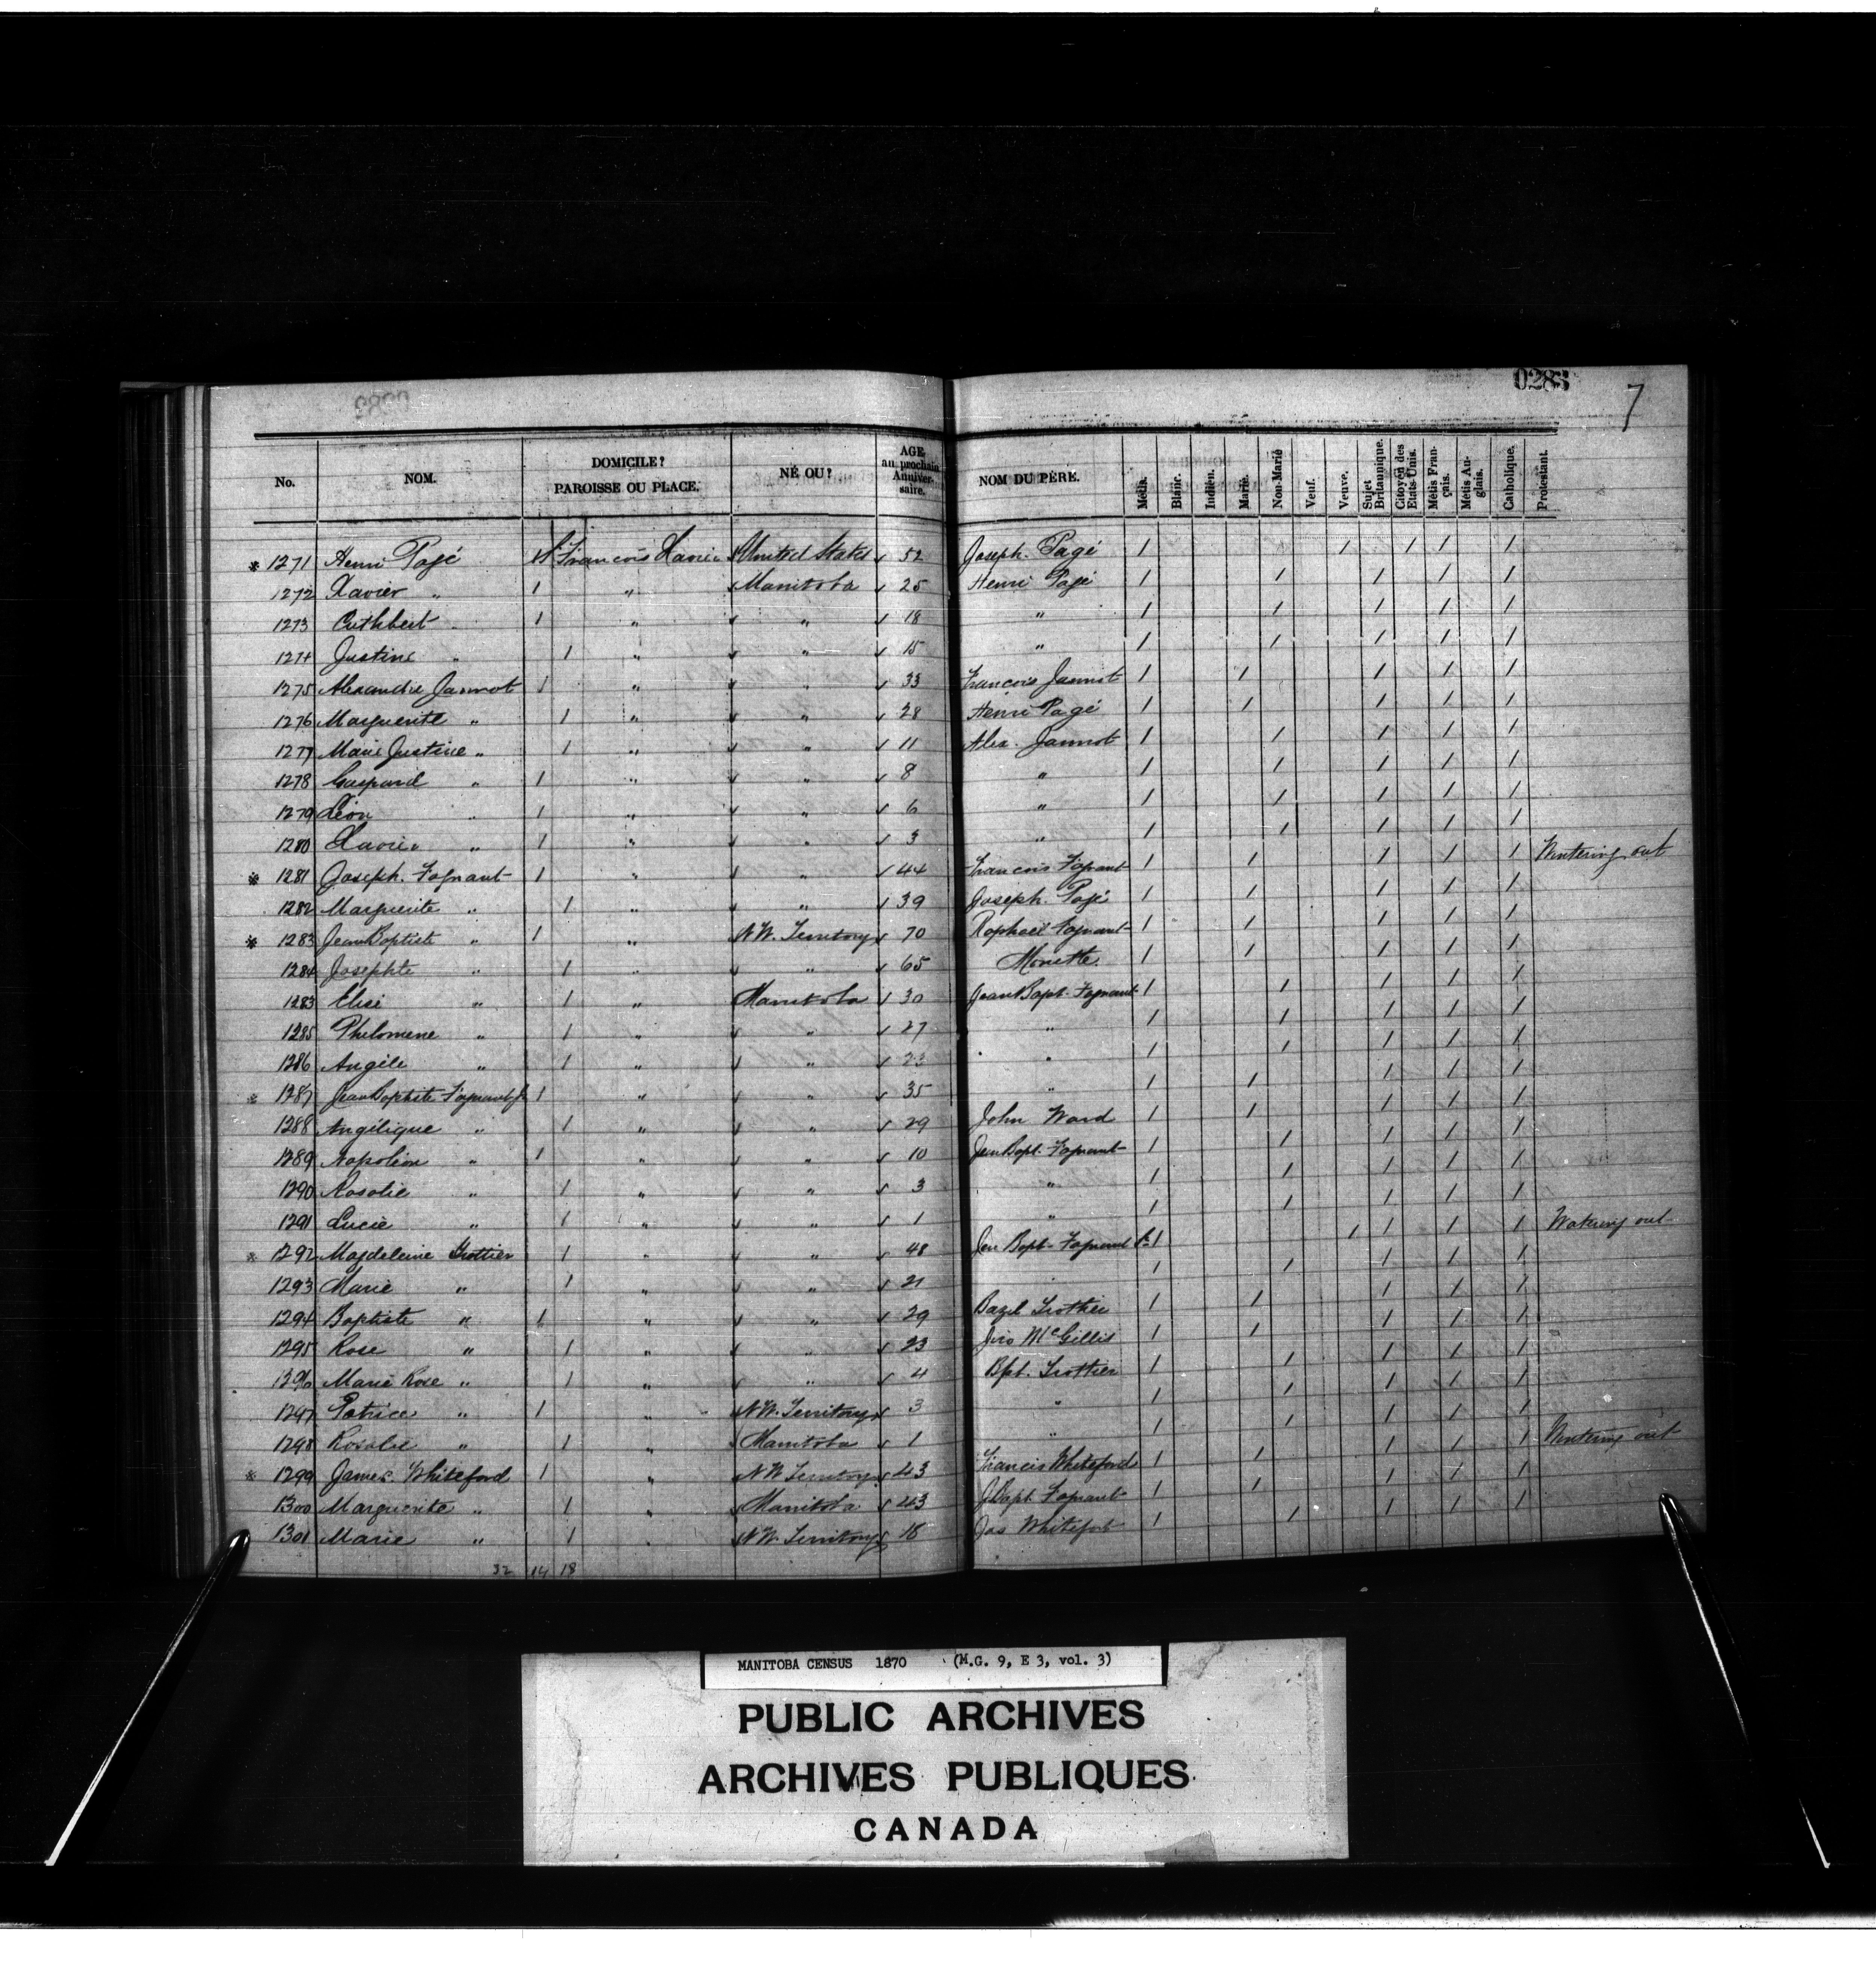 0283
7
No. NOM. DOMICILE? PAROISSE OU PLACE. NÉ OU? AGE au prochain Anniversaire. NOM DU PÈRE. Métis. Blanc. Indien. Marié. Non-Marié Veuf. Veuve. Sujet Britannique. Citoyen des Etats-Unis. Métis Français. Métis Anglais. Catholique. Protestant.
* 1271 Henri Pagé St François Xavier United States 52 Joseph Pagé 1 1 1 1 1
1272 Xavier " 1 " Manitoba 25 Henri Pagé 1 1 1 1 1
1273 Cuthbert " 1 " " 18 " 1 1 1 1 1
1274 Justine " 1 " " 15 " 1 1 1 1 1
1275 Alexandre Jannot 1 " " 33 François Jannot 1 1 1 1 1
1276 Marguerite " 1 " " 28 Henri Pagé 1 1 1 1 1
1277 Marie Justine " 1 " " 11 Alex. Jannot 1 1 1 1 1
1278 Gaspard " 1 " " 8 " 1 1 1 1 1
1279 Léon " 1 " " 6 " 1 1 1 1 1
1280 Xavier " 1 " " 3 " 1 1 1 1 1
* 1281 Joseph Fagnant 1 " " 44 François Fagnant 1 1 1 1 1 Wintering out
1282 Marguerite " 1 " " 39 Joseph Pagé 1 1 1 1 1
* 1283 Jean Baptiste " 1 " N.W. Territory 70 Raphael Fagnant 1 1 1 1 1
1284 Josephte " 1 " " 65 Monette 1 1 1 1 1
1283 Elise " 1 " Manitoba 30 Jean Bapt. Fagnant 1 1 1 1 1
1285 Philomene " 1 " " 27 " 1 1 1 1 1
1286 Angèle " 1 " " 23 " 1 1 1 1 1
* 1287 Jean Baptiste Fagnant Jr 1 " " 35 " 1 1 1 1 1
1288 Angélique " 1 " " 29 John Ward 1 1 1 1 1
1289 Napoléon " 1 " " 10 Jean Bapt. Fagnant 1 1 1 1 1
1290 Rosalie " 1 " " 3 " 1 1 1 1 1
1291 Lucie " 1 " " 1 " 1 1 1 1 1
* 1292 Magdeleine Trottier 1 " " 48 Jean Bapt. Fagnant Sr 1 1 1 1 1 Wintering out
1293 Marie " 1 " " 21 " 1 1 1 1 1
1294 Baptiste " 1 " " 29 Bazil Trottier 1 1 1 1 1
1295 Rose " 1 " " 23 Jno McGillis 1 1 1 1 1
1396 Marie Rose " 1 " " 4 Bpt. Trottier 1 1 1 1 1
1297 Patrice " 1 " N.W. Territory 3 " 1 1 1 1 1
1298 Rosalie " 1 " Manitoba 1 " 1 1 1 1 1
* 1299 James Whiteford 1 " N.W Territory 43 Francis Whiteford 1 1 1 1 1 Wintering out
1300 Marguerite " 1 " Manitoba 43 J. Bapt. Fagnant 1 1 1 1 1
1301 Marie " 1 " N.W. Territory 18 Jas Whiteford 1 1 1 1 1
32 14 18
MANITOBA CENSUS 1870 (M.G. 9, E 3, vol. 3)
PUBLIC ARCHIVES
ARCHIVES PUBLIQUES
CANADA